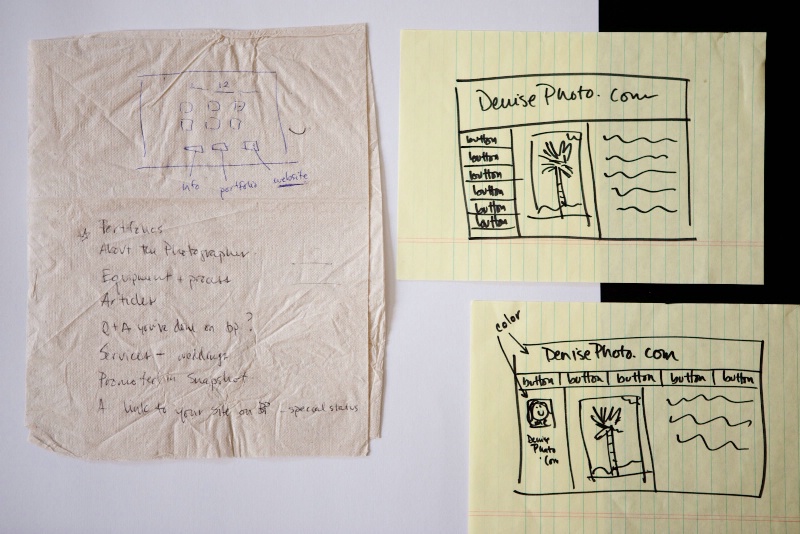 12
info
portfolio
website
Portfolios
About the Photographer
Equipment + process
Articles
Q+A you've done on bp?
Services - weddings
Promoter in Snapshot
A link to your site on BP - special status
DenisePhoto.com
button
button
button
button
button
button
color
DenisePhoto.com
button button button button button
Denise
Photo
.com